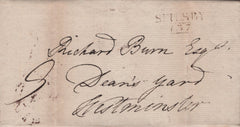 SPILSBY
Richard Burn Esqr.
Dean's Yard
Westminster